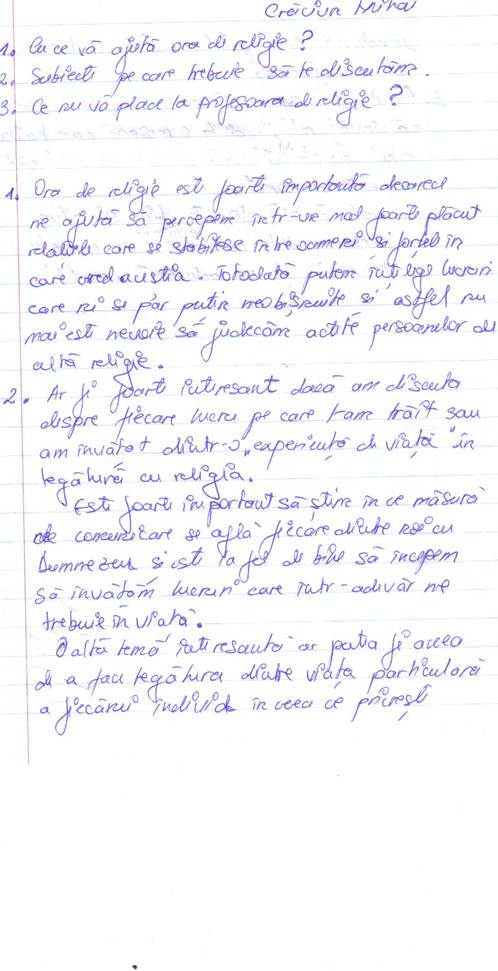 Crăciun Mihai
1. Cu ce vă ajută ora de religie?
2. Subiecte pe care trebuie să le discutăm.
3. Ce nu vă place la profesoara de religie?
1. Ora de religie este foarte importantă deoarece
ne ajută să percepem într-un mod foarte plăcut
relațiile care se stabilesc între oameni și forțele în
care cred aceștia. Totodată putem înțelege lucruri
care ni se par puțin neobișnuite și astfel nu
mai este nevoie să judecăm actele persoanelor de
altă religie.
2. Ar fi foarte interesant dacă am discuta
despre fiecare lucru pe care l-am trăit sau
am învățat dintr-o „experiență de viață" în
legătură cu religia.
Este foarte important să știm în ce măsură
de comunicare se află fiecare dintre noi cu
Dumnezeu și este la fel de bine să începem
să învățăm lucruri care într-adevăr ne
trebuie în viată.
O altă temă interesantă ar putea fi aceea
de a face legătura dintre viața particulară
a fiecărui individ în ceea ce privește